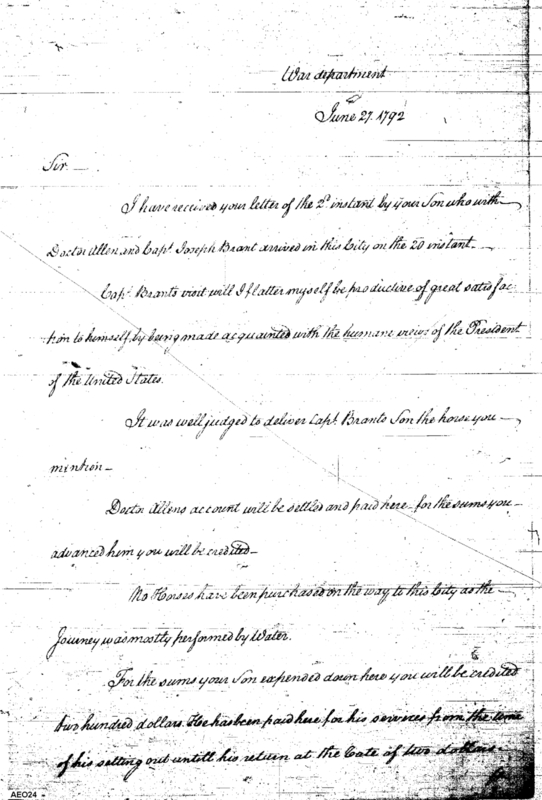 War department
June 27. 1792
Sir.
I have received your letter of the 2d instant by your Son who with
Doctor Allen and Capt. Joseph Brant arrived in this City on the 20 instant.
Capt. Brants visit will I flatter myself be productive of great satisfac-
tion to himself, by being made acquainted with the humane views of the President
of the United States.
It was well judged to deliver Capt. Brants Son the horse you
mention
Doctor Allens account will be settled and paid here for the sums you
advanced him you will be credited
No Horses have been purchased on the way to this City as the
Journey was mostly performed by Water.
For the sums your Son expended down here you will be credited
two hundred dollars. He has been paid here for his services from the time
of his setting out untill his return at the Rate of two dollars
AEO24